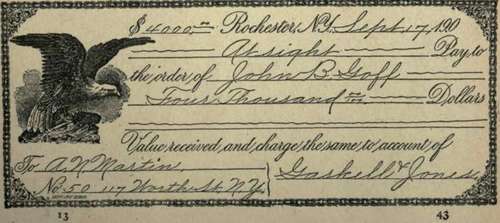 $4000.00 Rochester, N.Y. Sept. 17, 190
At sight Pay to
the order of John B. Goff
Four Thousand no/100 Dollars
Value received, and charge the same to account of
To A. N. Martin Gaskell & Jones
No. 50 117 Worth St. N.Y.
13 43